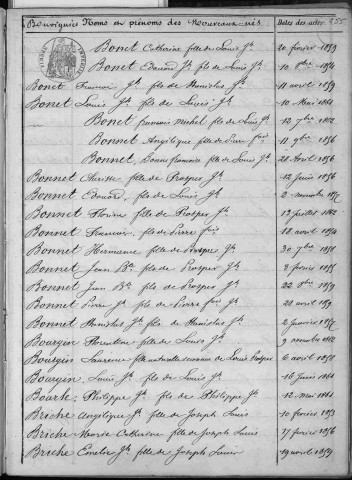 Bourignies Noms et prénoms des Nouveaux-nés Dates des actes 255
Bonet Catherine fille de Louis Jh 20 février 1859
Bonet Edouard Jh fils de Louis Jh 10 8bre 1854
Bonet François Jh fils de Stanislas Jh 11 avril 1859
Bonet Louis Jh fils de Louis Jh 10 Mai 1861
Bonet François Michel fils de Louis Jh 12 9bre 1862
Bonnet Angélique fille de Pierre fois 11 9bre 1856
Bonnet, François fils de Louis Jh 28 Août 1856
Bonnet Clarisse fille de Prosper Jh 12 Juin 1856
Bonnet Edouard, fils de Louis Jh 2 novembre
Bonnet Florine fille de Prosper Jh 13 juillet 1862
Bonnet François, fils de Pierre fois 18 avril 1854
Bonnet Hermance fille de Prosper Jh 30 7bre 1858
Bonnet Jean Bte fils de Prosper Jh 8 février 1855
Bonnet Jean Bte fils de Prosper Jh 22 8bre 1859
Bonnet Pierre Jh fils de Pierre fois Jh 28 avril 1859
Bonnet Stanislas Jh fils de Stanislas Jh 2 Janvier
Bourgin Florentine fille de Louis Jh 9 novembre 1862
Bourgin Laurence fille naturelle reconnue de Louis Prosper 6 avril 1858
Bourgin Louis Jh fils de Louis Jh 16 Juin 1861
Bourle Philippe Jh fils de Philippe Jh 12 Mai 1861
Briche Angélique Jh fille de Joseph Louis 10 février 1853
Briche Marie Catherine fille de Joseph Louis 17 février 1856
Briche Emelie Jh fille de Joseph Louis 19 avril 1859